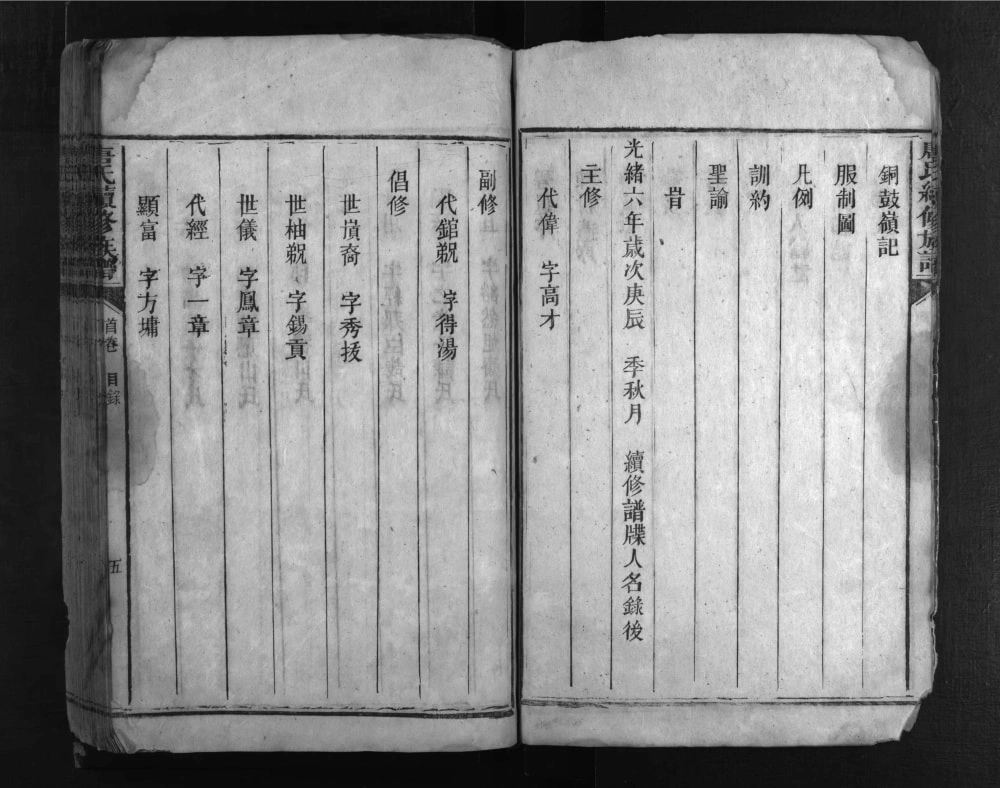 銅鼓嶺記
服制圖
凡例
訓約
聖諭
昔
光緒六年歲次庚辰 季秋月 續修譜牒人名錄後
主修
代偉 字高才
副修
代錧 字得湯
倡修
世裔 字秀拔
世柚 字錫貢
世儀 字鳳章
代經 字一章
顯富 字方墉
唐氏續修族譜
首卷 目錄
五